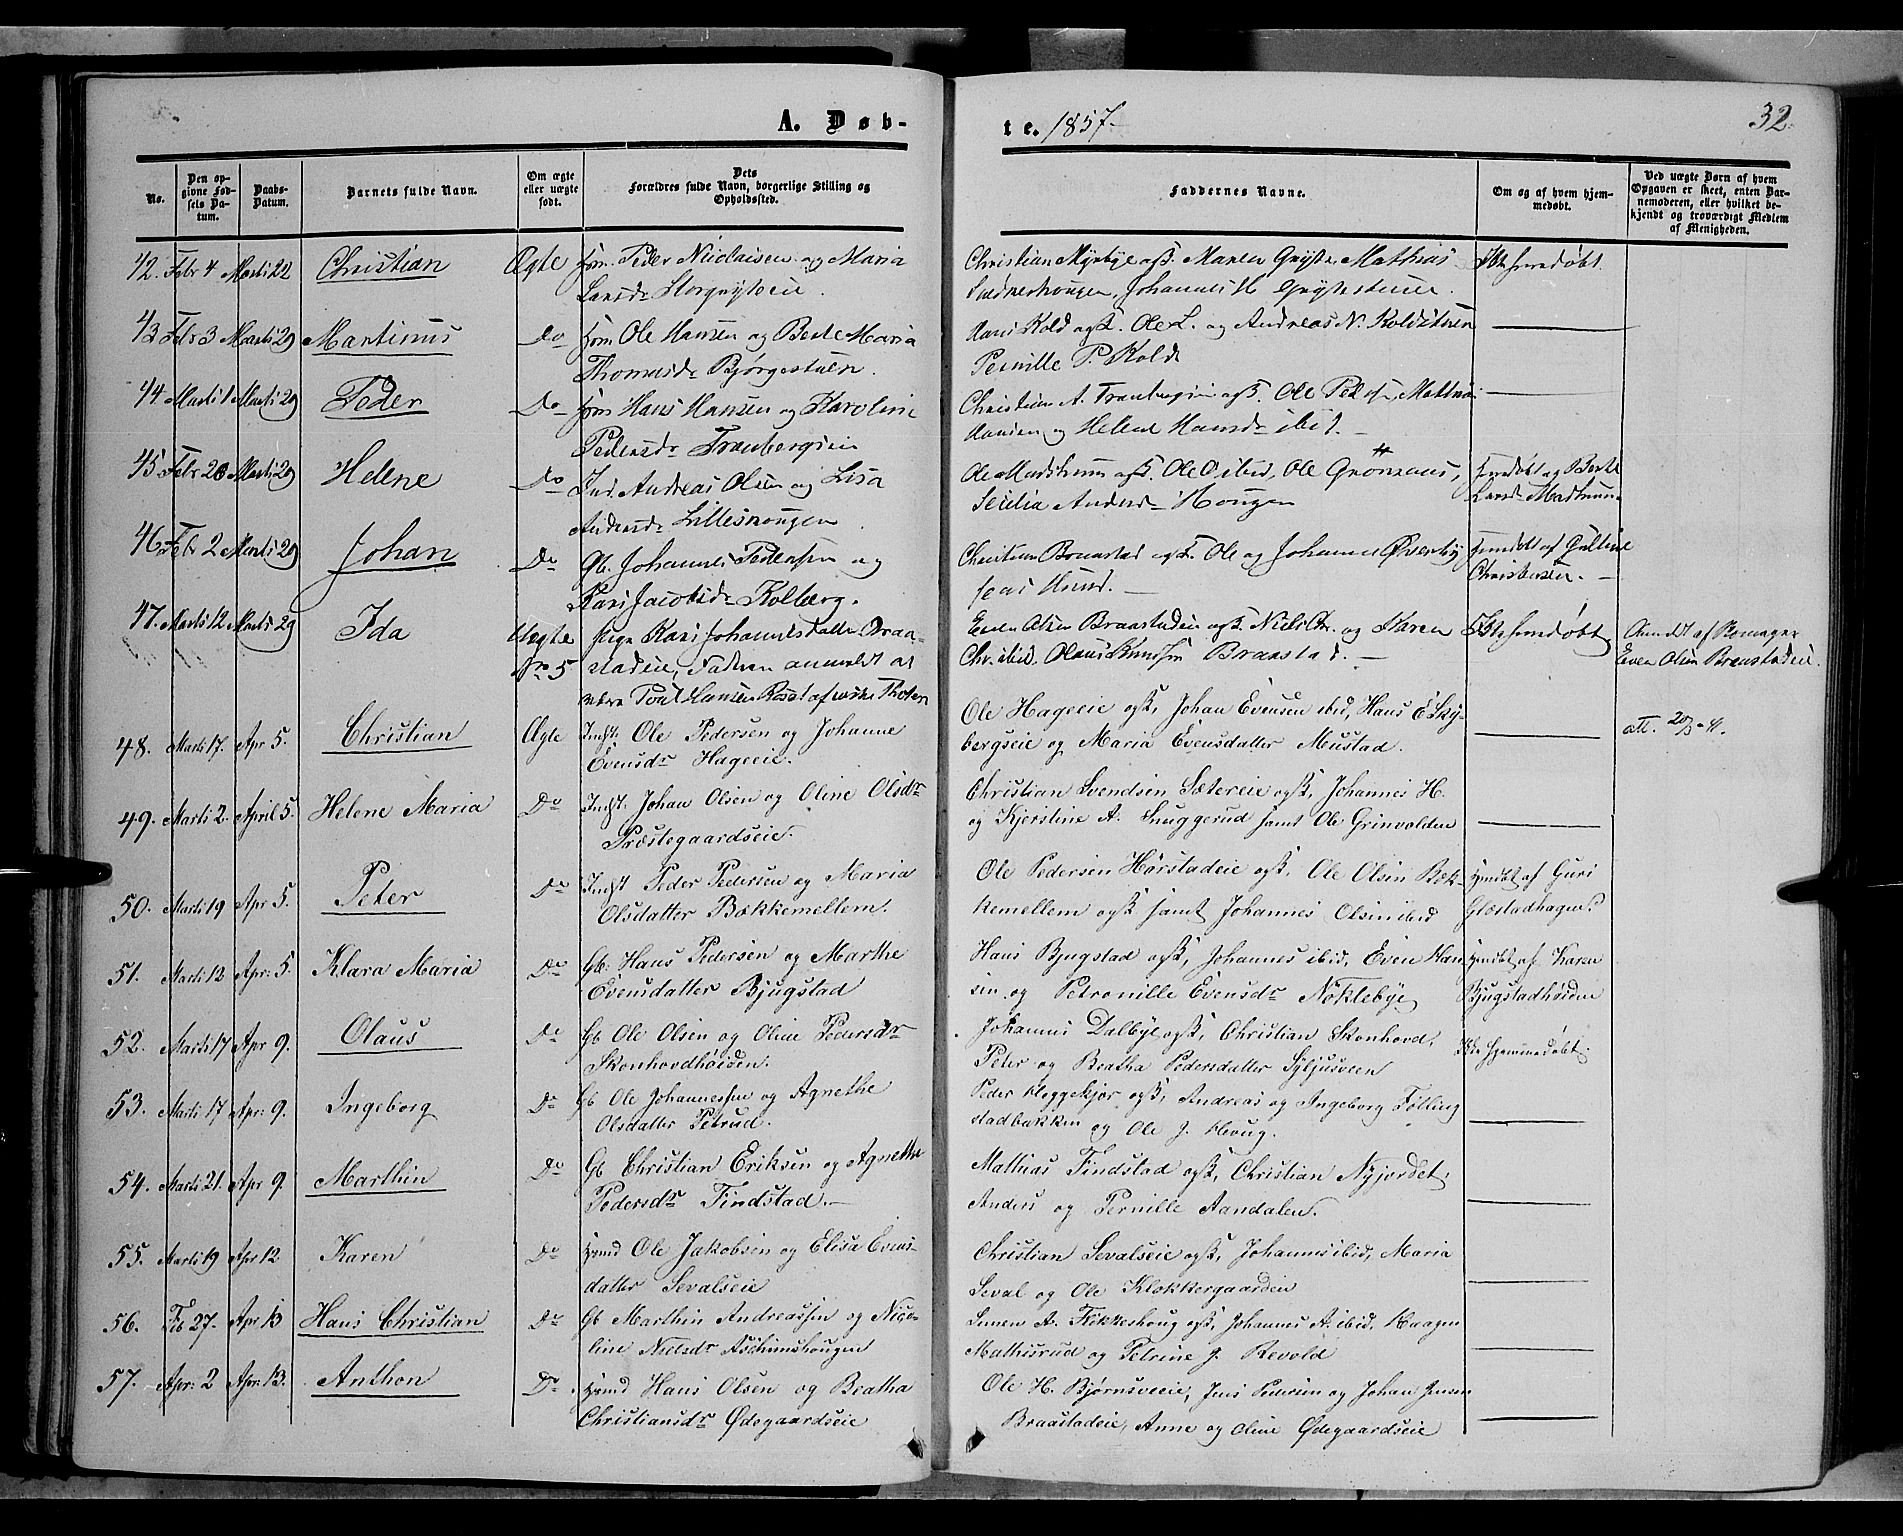 A. Døb-
te. 1857.
32.
No.
Den op-
givne Fød-
sels Da-
tum.
Daabs-
Datum.
Barnets fulde Navn.
Om ægte
eller uægte
født.
Dets
Forældres fulde Navn, borgerlige Stilling og
Opholdssted.
Faddernes Navne.
Om og af hvem hjem-
medøbt.
Ved uægte Børn af hvem
Opgaven er skeet, enten Bar-
nemoderen, eller hvilket be-
kjendt og troværdigt Medlem
af Menigheden.
42. Febr 4 Marti 22 Christian Ægte Peder Nicolaisen og Maria
Larsdr
Christian Myrbye Maren Mathias
Johannes H.
Ikke hjemdøbt.
43 Febr 3 Marti 29 Martinus Do Ole Hansen og Berte Maria
Thomasdr Bjørgestuen.
Hans Kold Ole L. og Andreas N.
Pernille P. Kold
44 Marti 1 Marti 29 Peder Do Hans Hansen og Karoline
Pedersdr Tranbergeie
Christian A. Tranbergeie Ole
Hansen og Helene Hansdr ibid.
45 Febr 20 Marti 29 Helene Do Ind. Andreas Olsen og Lisa
Andersdr Lilleshougen
Ole Madshuus Ole Ole
Andersdr Hougen
hjemdøbt og Berte
Larsdr Madshuus
46 Feb 2 Marti 29 Johan Do Gb. Johannes Pedersen og
Kari Jacobsdr Kolberg.
Christian Braastad Ole og Johannes Øverby
Hund.
hjemdøbt af
Christensen.
47. Marti 12 Marti 29 Ida Uægte Pige Kari Johannesdatter Braa-
No 5 stadeie, Faderen anmeldt at
være Poul Hansen af Thoten
Even Olsen Braastadeie Niels Chr. og Karen
Chr. ibid. Olaus Knudsen Braastad.
Ikke hjemdøbt
Anmeldt af
Even Olsen Braastadeie.
48. Marti 17. Apr 5. Christian Ægte Indst. Ole Pedersen og Johanne
Evensdr Hageeie.
Ole Hageeie Johan Evensen ibid, Hans E Sky-
bergseie og Maria Evensdatter Mustad.
att.
49. Marti 2. April 5. Helene Maria Do Indst. Johan Olsen og Oline Olsdr
Præstegaardseie.
Christian Svendsen Sætereie ogst, Johannes H.
og Kjerstine A. Snuggerud samt Ole Grinvolden
50. Marti 19 Apr 5. Peter Do Indst Peder Pedersen og Maria
Olsdatter Bækkemellem.
Ole Pedersen Hørstadeie ogst, Ole Olsen Bæk-
kemellem ogst samt Johannes Olsen ibid
Hjemdøbt af Guri
Glæstadhagen.
51. Marti 12 Apr: 5. Klara Maria Do Gb. Hans Pedersen og Marthe
Evensdatter Bjugstad
Hans Bjugstad ogst, Johannes ibid, Even Han-
sen og Petronille Evensdr Nøklebye
Hjemdøbt af Karen
Bjugstadhøiden
52. Marti 17 Apr 9. Olaus Do Gb Ole Olsen og Oline Pedersdr
Skonhovdhøiden.
Johannes Dalbye ogst, Christian Skonhovd,
Peter og Beatha Pedersdatter Syljusveen
Ikke hjemmedøbt.
53. Marti 17 Apr: 9. Ingeborg Do Gb Ole Johannessen og Agnethe
Olsdatter Petrud.
Peder Kleggekjør ogst, Andreas og Ingeborg Følling
stadbakken og Ole J. Houg.
54. Marti 21. Apr 9. Marthin Do Gb Christian Eriksen og Agnethe
Pedersdr Findstad.
Mathias Findstad ogst, Christian Nyjordet,
Anders og Pernille Aandalen.
55. Marti 19 Apr 12 Karen Do Hmd Ole Jakobsen og Elisa Evens-
datter Sevalseie
Christian Sevalseie ogst, Johannes ibid, Maria
Seval og Ole Klokkergaarden
56. Feb 27. Apr 13 Hans Christian Do Gb Marthin Andreassen og Nico-
line Nielsdr Aschimshougen
Simen A. Fikkeshoug ogst, Johannes A. ibid, Haagen
Mathisrud og Petrine J. Revold
57. Apr: 2 Apr: 13. Anthon Do Hmd Hans Olsen og Beatha
Christiansdr Ødegaardseie
Ole H. Bjørnsveeie, Jens Pedersen og Johan Jensen
Braastadeie, Anne og Oline Ødegaardseie